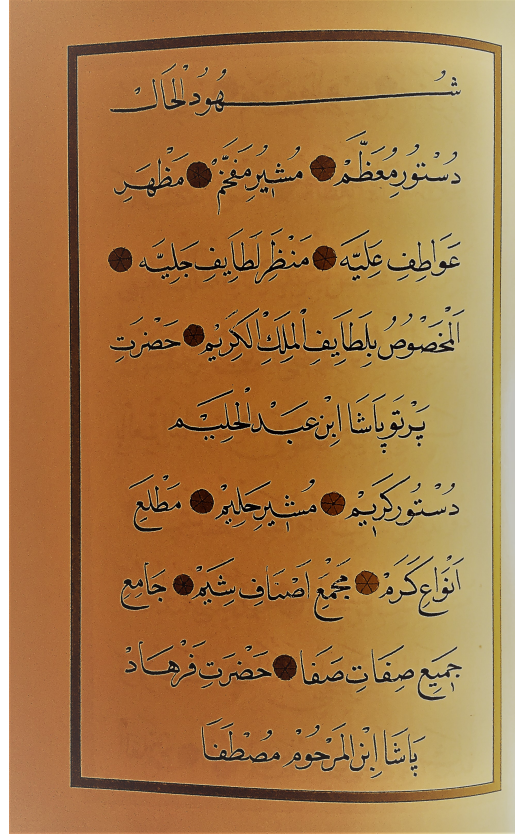 شُهُودُ الْحَالْ
دُسْتُورُ مُعَظَّمْ مُشِيرُ مُفَخَّمْ مَظْهَرِ
عَوَاطِفِ عَلِيَّه مَنْظَرِ لَطَايِفِ جَلِيَّه
اَلْمَخْصُوصُ بِلَطَايِفِ الْمَلِكِ الْكَرِيمْ حَضْرَتِ
پَرْتَو پَاشَا ابْنِ عَبْدِ الْحَلِيمْ
دُسْتُورِ كَرِيمْ مُشِيرِ حَلِيمْ مَطْلَعِ
اَنْوَاعِ كَرَمْ مَجْمَعِ اَصْنَافِ شِيَمْ جَامِعِ
جَمِيعِ صِفَاتِ صَفَا حَضْرَتِ فَرْهَادْ
پَاشَا اِبْنِ الْمَرْحُومْ مُصْطَفَا